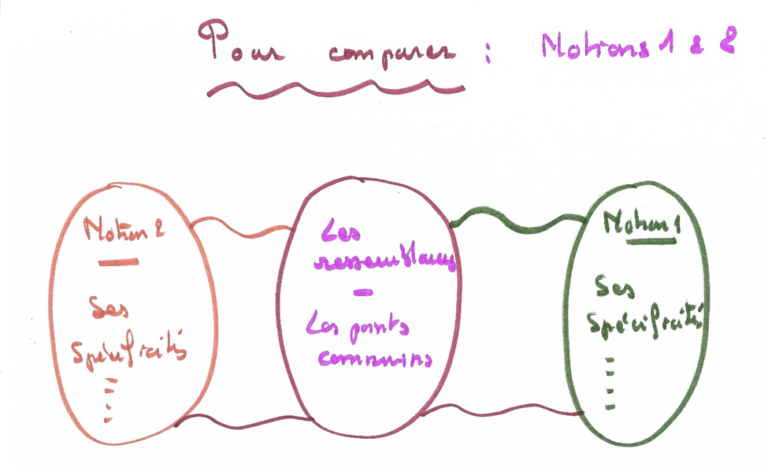 Pour comparer : Notions 1 & 2
Notion 2
Ses
spécificités
Les
ressemblances
Les points
communs
Notion 1
Ses
spécificités